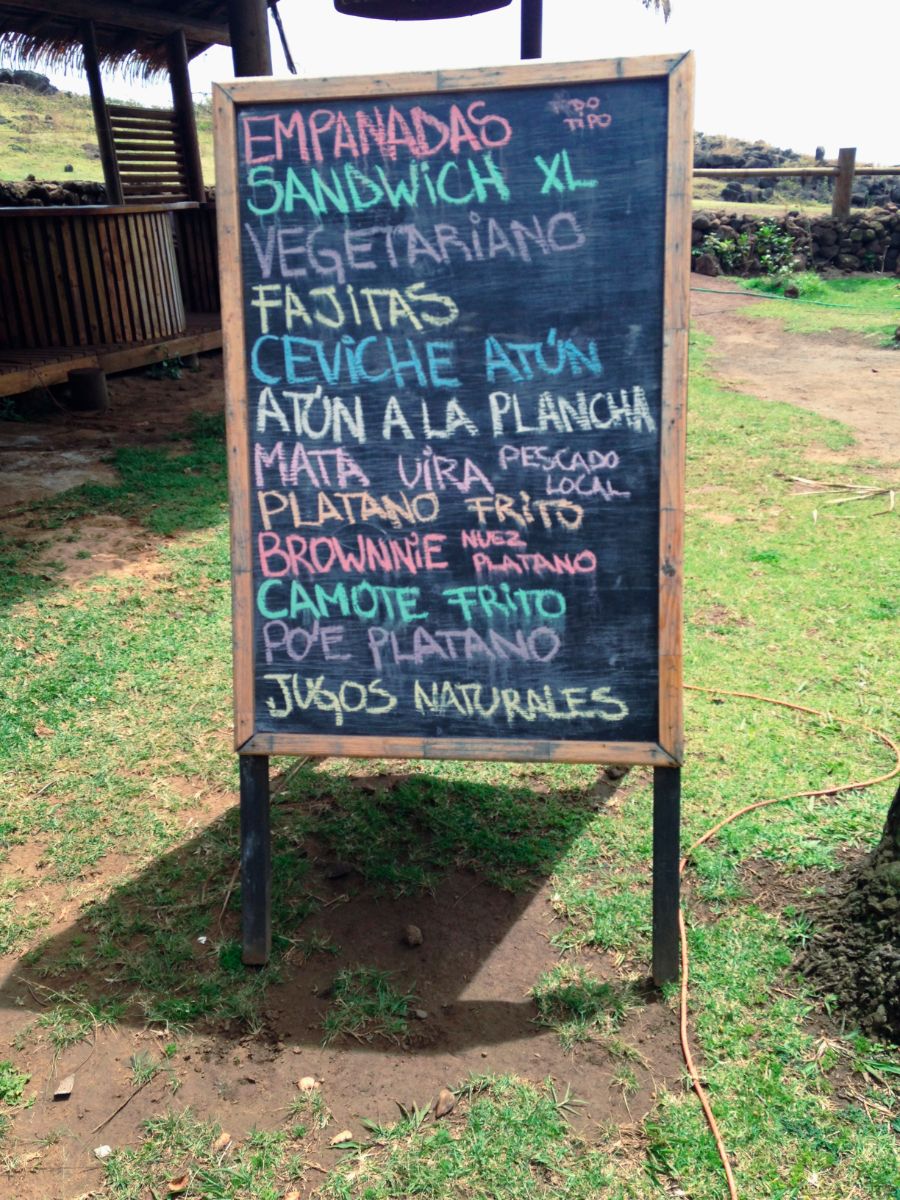 EMPANADAS TDO TIPO
SANDWiCH XL
VEGETARiANO
FAJiTAS
CEViCHE ATÚN
ATÚN A LA PLANCHA
MATA UiRA PESCADO LOCAL
PLATANO FRiTO
BROWNNiE NUEZ PLATANO
CAMOTE FRiTO
PO'E PLATANO
JUGOS NATURALES